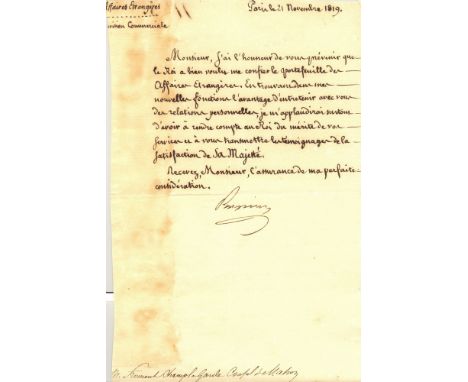 Affaires Etrangères
Paris le 21 Novembre 1819.
Division Commerciale
Monsieur, j'ai l'honneur de vous prévenir que
le Roi a bien voulu me confier le portefeuille des
Affaires Etrangères. En trouvant dans mes
nouvelles fonctions l'avantage d'entretenir avec vous
des relations personnelles, je m'applaudirai surtout
d'avoir à rendre compte au Roi du mérite de vos
services et à vous transmettre les témoignages de la
satisfaction de Sa Majesté.
Recevez, Monsieur, l'assurance de ma parfaite
considération.
Pasquier
M. Garde Consul à Mahon